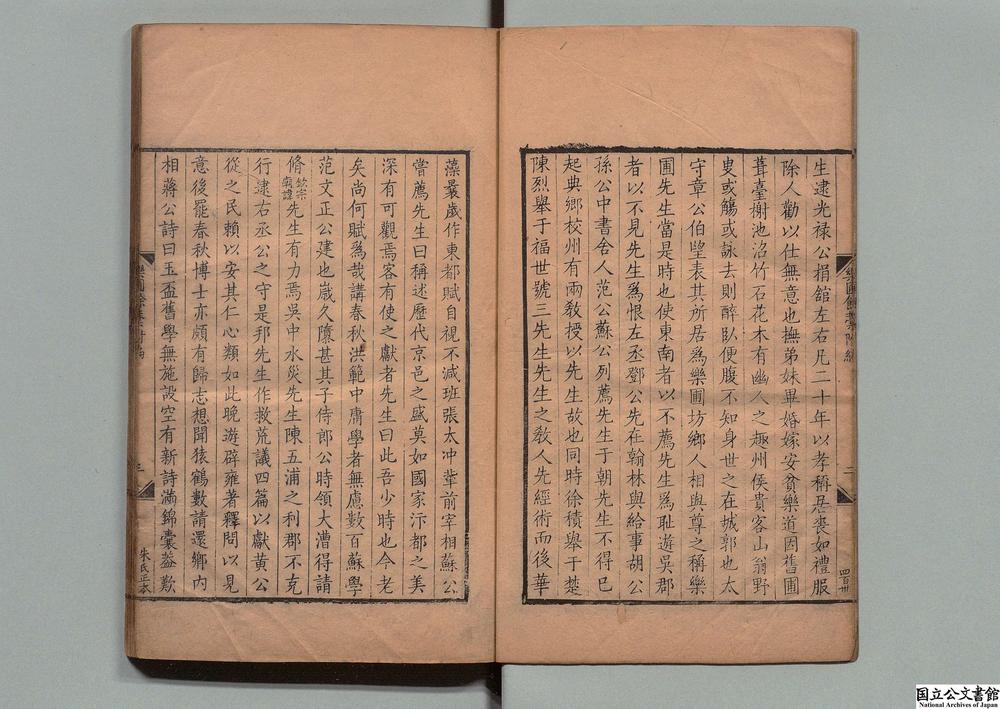 生逮光禄公捐舘左右凡二十年以孝稱忌喪如禮服
除人勸以仕無意也撫弟妹畢婚嫁安貧樂道因舊圃
葺臺榭池沼竹石花木有幽人之趣州侯貴客山翁野
叟或觴或詠去則醉臥便腹不知身世之在城郭也太
守章公伯望表其所居為樂圃坊鄉人相與尊之稱樂
圃先生當是時也使東南者以不薦先生為恥遊吳郡
者以不見先生為恨左丞鄧公先在翰林與給事胡公
孫公中書舍人范公蘇公列薦先生于朝先生不得已
起典鄉校州有兩教授以先生故也同時徐積舉于楚
陳烈舉于福世號三先生先生之教人先經術而後華
二
四百卅
藻曩歲作東都賦自視不減班張太冲輩前宰相蘇公
嘗薦先生曰稱述歷代京邑之盛莫如國家汴都之美
深有可觀焉客有使之獻者先生曰此吾少時也今老
矣尚何賦為哉講春秋洪範中庸學者無慮數百蘇學
范文正公建也歲久隳甚其子侍郎公時領大漕得請
脩欽宗廟諱先生有力焉吳中水災先生陳五浦之利郡不克
行逮右丞公之守是邦先生作救荒議四篇以獻黃公
從之民賴以安其仁心類如此晚遊辟雍著釋問以見
意後罷春秋博士亦頗有歸志想聞猿鶴數請還鄉內
相蔣公詩曰玉盃舊學無施設空有新詩滿錦囊益歎
三
朱氏正本
国立公文書館
National Archives of Japan